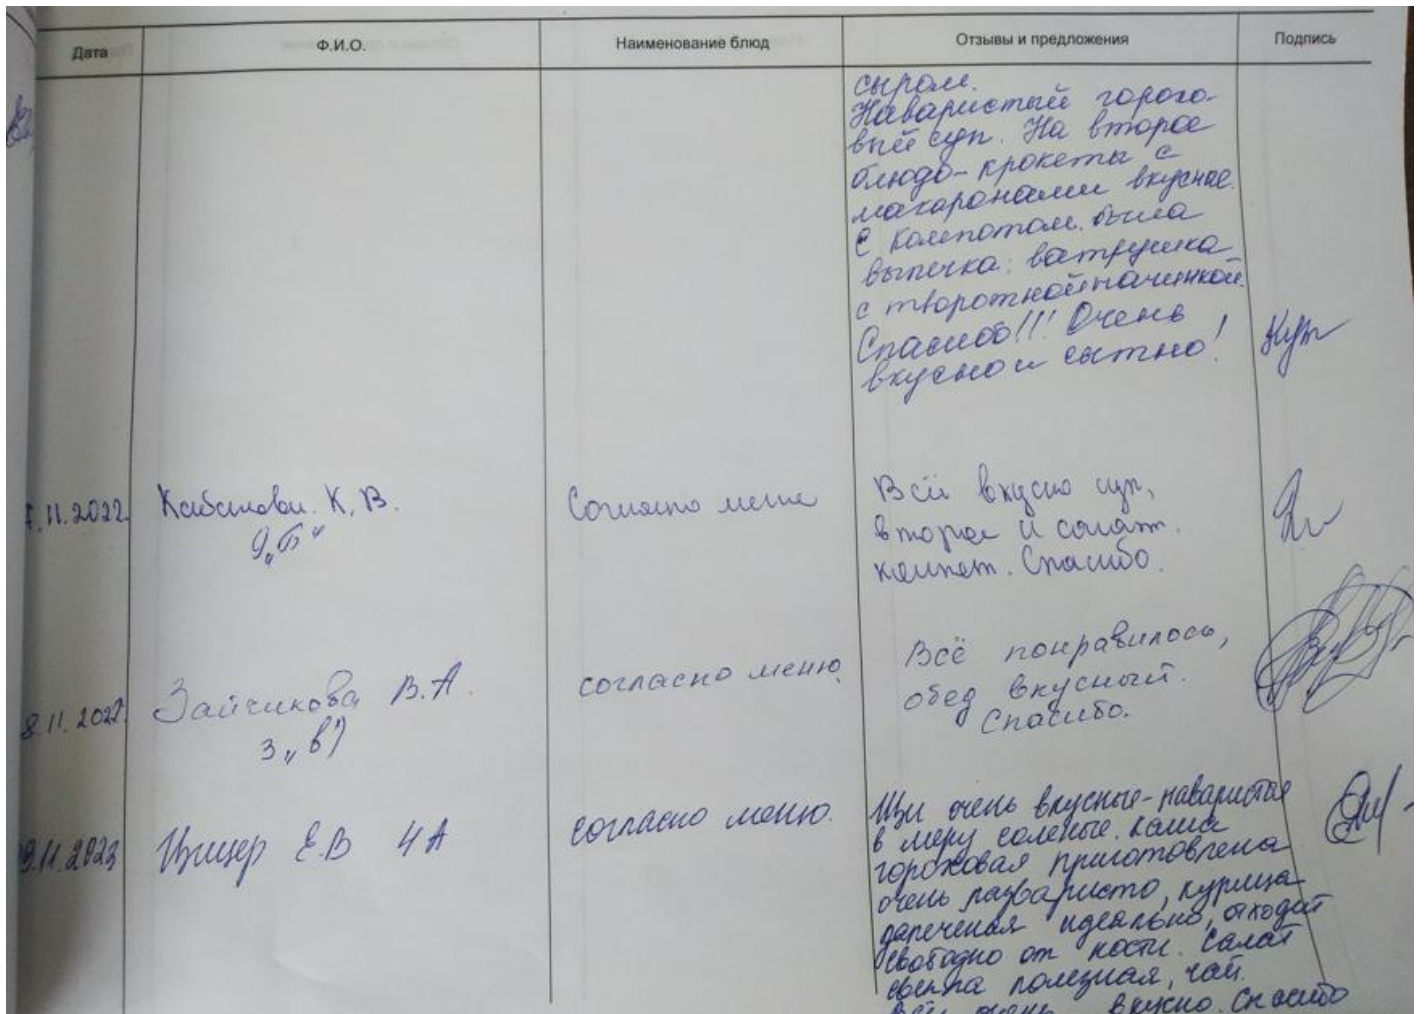 Дата Ф.И.О. Наименование блюд Отзывы и предложения Подпись
сыром.
Наваристый горохо-
вый суп. На второе
блюдо - крокеты с
макаронами вкусное.
С компотом была
выпечка: ватрушка
с творожной начинкой.
Спасибо!!! Очень
вкусно и сытно!
.11.2022 К.В. Согласно меню Всё вкусно суп,
9 „Б“ второе и салат.
компот. Спасибо.
8.11.2022 Зайчикова В.А. согласно меню. Всё понравилось,
3 „В“ обед вкусный.
Спасибо.
9.11.2022 Е.В 4А согласно меню. Щи очень вкусные - наваристые
в меру соленые. Каша
гороховая приготовлена
очень разваристо, курица
идеально, отходит
свободно от кости. Салат
полезная, чай.
Всё очень вкусно. Спасибо